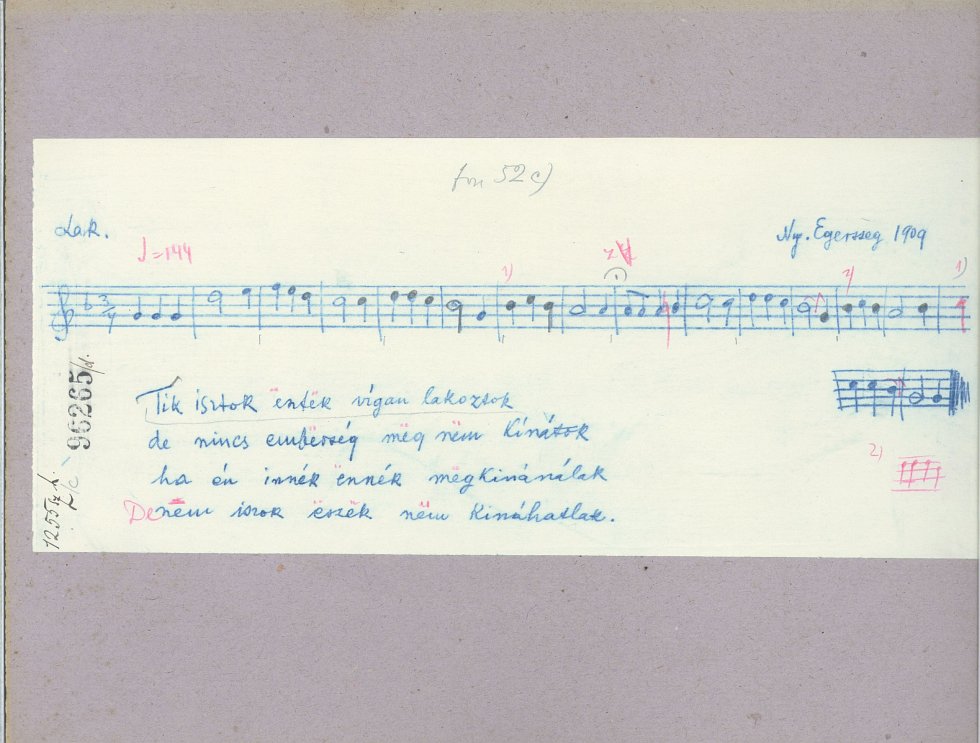 fon 52c)
Lak.
Ny. Egersseg 1909
♩=144
1)
2)
1)
3/4
Tik isztok ëntëk vígan lakoztok
de nincs embërség mëg nëm Kínátok
ha én innék ënnék mëgkinánálak
De nëm iszok ëszëk nëm Kináhatlak.
2)
96265/d.